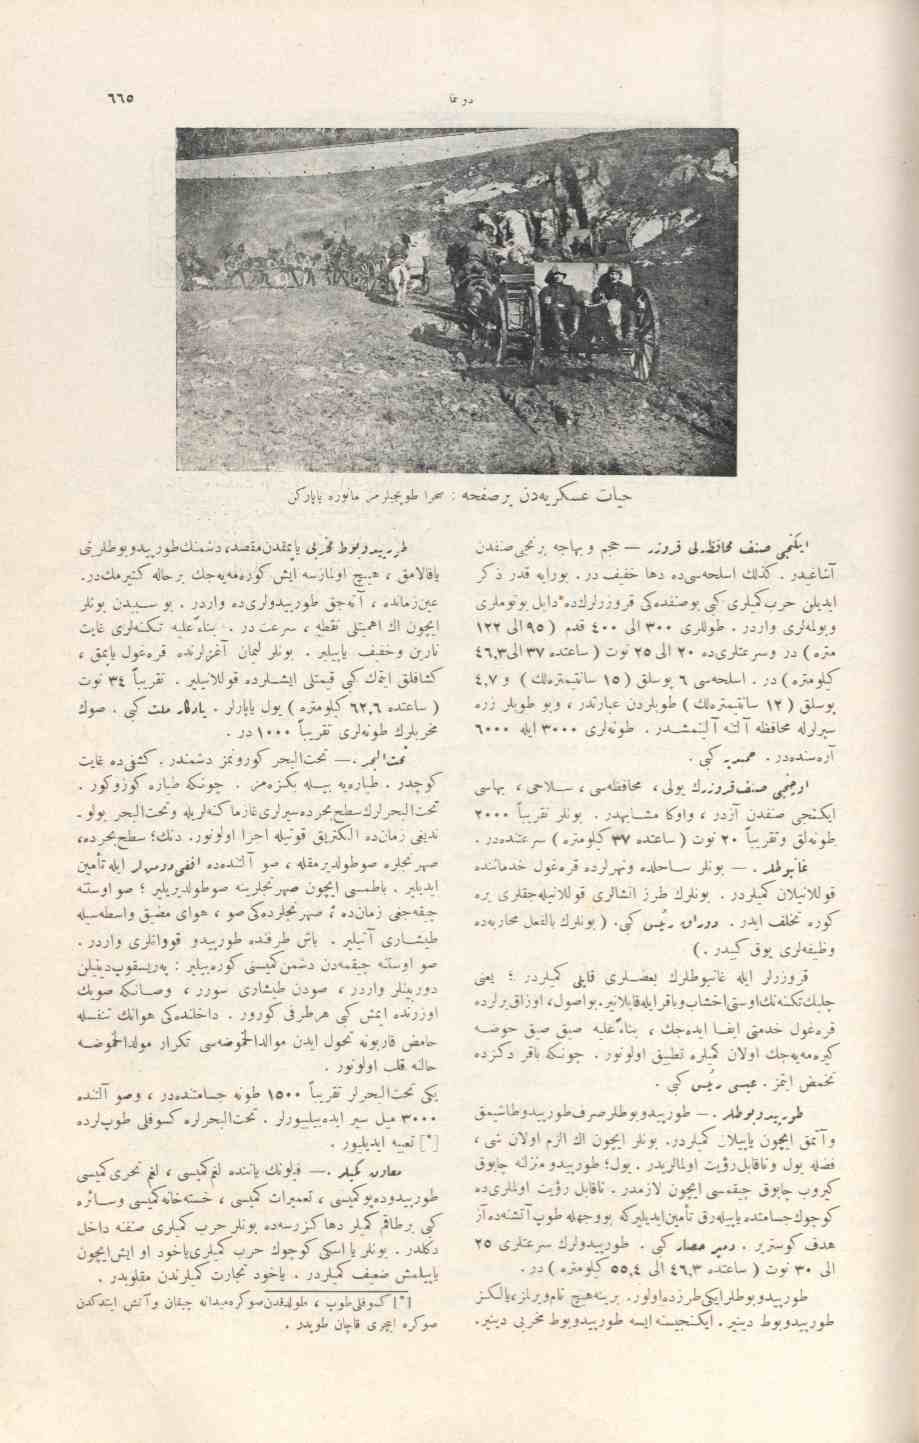 دونما
٦٦٥
حیات عسکریه‌دن بر صفحه : صحرا طوپجیلرمز مانوره یاپارکن
ایکنجی صنف محافظه‌لی قروزر — حجم و بهاجه برنجی صنفدن
آشاغیدر . کذلك اسلحه‌سی‌ده دها خفیف در . بورایه قدر ذکر
ایدیلن حرب کمیلری کبی بوصنفده‌کی قروزرلرك‌ده دابل بوتوملری
وبولمه‌لری واردر . طوللری ٣٠٠ الی ٤٠٠ قدم ( ٩٥ الی ١٢٢
متره ) در وسرعتلری‌ده ٢٠ الی ٢٥ نوت ( ساعتده ٣٧ الی ٤٦,٣
کیلومتره ) در . اسلحه‌سی ٦ بوسلق ( ١٥ سانتیمتره‌لك ) و ٤,٧
بوسلق ( ١٢ سانتیمتره‌لك ) طوپلردن عبارتدر ، وبو طوپلر زره
سپرلرله محافظه آلتنه آلینمشدر . طونه‌لری ٣٠٠٠ ایله ٦٠٠٠
آره‌سنده‌در . حمیدیه کبی .
اوچنجی صنف قروزرك بولی ، محافظه‌سی ، سلاحی ، بهاسی
ایکنجی صنفدن آزدر ، واوکا مشابهدر . بونلر تقریباً ٢٠٠٠
طونه‌لق وتقریباً ٢٠ نوت ( ساعتده ٣٧ کیلومتره ) سرعتنده‌در .
غانبوطلر . — بونلر ساحلده ونهرلرده قره‌غول خدماتنده
قوللانیلان کمیلردر . بونلرك طرز انشالری قوللانیله‌جقلری یره
کوره تخلف ایدر . دوراق رئیس کبی . ( بونلرك بالفعل محاربه‌ده
وظیفه‌لری یوق کبیدر . )
قروزرلر ایله غانبوطلرك بعضلری قاپلی کمیلردر : یعنی
چلیك تکنه‌نك اوستی اخشاب وباقر ایله قاپلانیر. بواصول ، اوزاق یرلرده
قره‌غول خدمتی ایفا ایده‌جك ، بناءً علیه صیق صیق حوضه
کیره‌مه‌یه‌جك اولان کمیلره تطبیق اولونور . چونکه باقر دکزده
تحمض ایتمز . عیسی رئیس کبی .
طورپیدوبوطلر . — طورپیدوبوطلر صرف طورپیدو طاشیمق
وآتمق ایچون یاپیلان کمیلردر. بونلر ایچون اك الزم اولان شی ،
فضله یول وناقابل رؤیت اولمالریدر . یول؛ طورپیدو منزلنه چابوق
کیروب چابوق چیقمسی ایچون لازمدر . ناقابل رؤیت اولملری‌ده
کوچوك جسامتده یاپیله‌رق تأمین ایدیلیرکه بووجهله طوپ آتشنه‌ده آز
هدف کوستریر . دمیر حصار کبی . طورپیدولرك سرعتلری ٢٥
الی ٣٠ نوت ( ساعتده ٤٦,٣ الی ٥٥,٤ کیلومتره ) در .
طورپیدوبوطلر ایکی طرزده اولور. برینه هیچ نام ویرلمز، یالکز
طورپیدوبوط دینیر . ایکنجیسنه ایسه طورپیدوبوط مخربی دینیر.
طورپیدوبوط مخربی یاپمقدن مقصد، دشمنك طورپیدوبوطلرینی
یاقالامق ، هیچ اولمازسه ایش کوره‌مه‌یه‌جك برحاله کتیرمك‌در.
عین زمانده ، آته‌جق طورپیدولری‌ده واردر . بو سببدن بونلر
ایچون اك اهمیتلی نقطه ، سرعت در . بناءً علیه تکنه‌لری غایت
نارین وخفیف یاپیلیر . بونلر لیمان آغزلرنده قره‌غول یاپمق ،
کشافلق ایتمك کبی قیمتلی ایشلرده قوللانیلیر . تقریباً ٣٤ نوت
( ساعتده ٦٢,٦ کیلومتره ) یول یاپارلر . یادکار ملت کبی . صوك
مخربلرك طونه‌لری تقریباً ١٠٠٠ در .
تحت‌البحر . — تحت‌البحر کورونمز دشمندر . کشفی‌ده غایت
کوچدر . طیاره‌یه بیله بکزه‌مز . چونکه طیاره کوزوکور .
تحت‌البحرلرك سطح بحرده سیرلری غاز ماکنه‌لریله وتحت‌البحر بولو-
ندیغی زمان‌ده الکتریق قوتیله اجرا اولونور. دنك؛ سطح بحرده،
صهرنجلره صو طولدیرمقله ، صو آلتنده‌ده افقی دومنلر ایله تأمین
ایدیلیر . باطمسی ایچون صهرنجلرینه صو طولدیریلیر ؛ صو اوستنه
چیقه‌جغی زمان‌ده ؛ صهرنجلرده‌کی صو ، هوای مضیق واسطه‌سیله
طیشاری آتیلیر . باش طرفنده طورپیدو قووانلری واردر .
صو اوستنه چیقمه‌دن دشمن کمیسنی کوره‌بیلیر : پریسقوپ دینیلن
دوربینلر واردر ، صودن طیشاری سورر ، وصانکه صویك
اوزرنده ایمش کبی هر طرفی کورور . داخلنده‌کی هوانك تنفسله
حامض قاربونه تحول ایدن مولدالحموضه‌سی تکرار مولدالحموضه
حالنه قلب اولونور .
یکی تحت‌البحرلر تقریباً ١٥٠٠ طونه جسامتنده‌در ، وصو آلتنده
٣٠٠٠ میل سیر ایده‌بیلیورلر . تحت‌البحرلره کسوفلی طوپلرده
[*] تعبیه ایدیلیور .
معاون کمیلر . — فیلونك یاننده لغم کمیسی ، لغم تحری کمیسی
طورپیدوده‌پو کمیسی ، تعمیرات کمیسی ، خسته‌خانه کمیسی وسائره
کبی برطاقم کمیلر دها کزرسه‌ده بونلر حرب کمیلری صنفنه داخل
دکلدر . بونلر یا اسکی کوچوك حرب کمیلری یاخود او ایش ایچون
یاپیلمش ضعیف کمیلردر . یاخود تجارت کمیلرندن مقلوبدر .
[*] کسوفلی طوپ ، طولدقدن صوکره میدانه چیقان وآتش ایتدکدن
صوکره ایچری قاچان طوپدر .